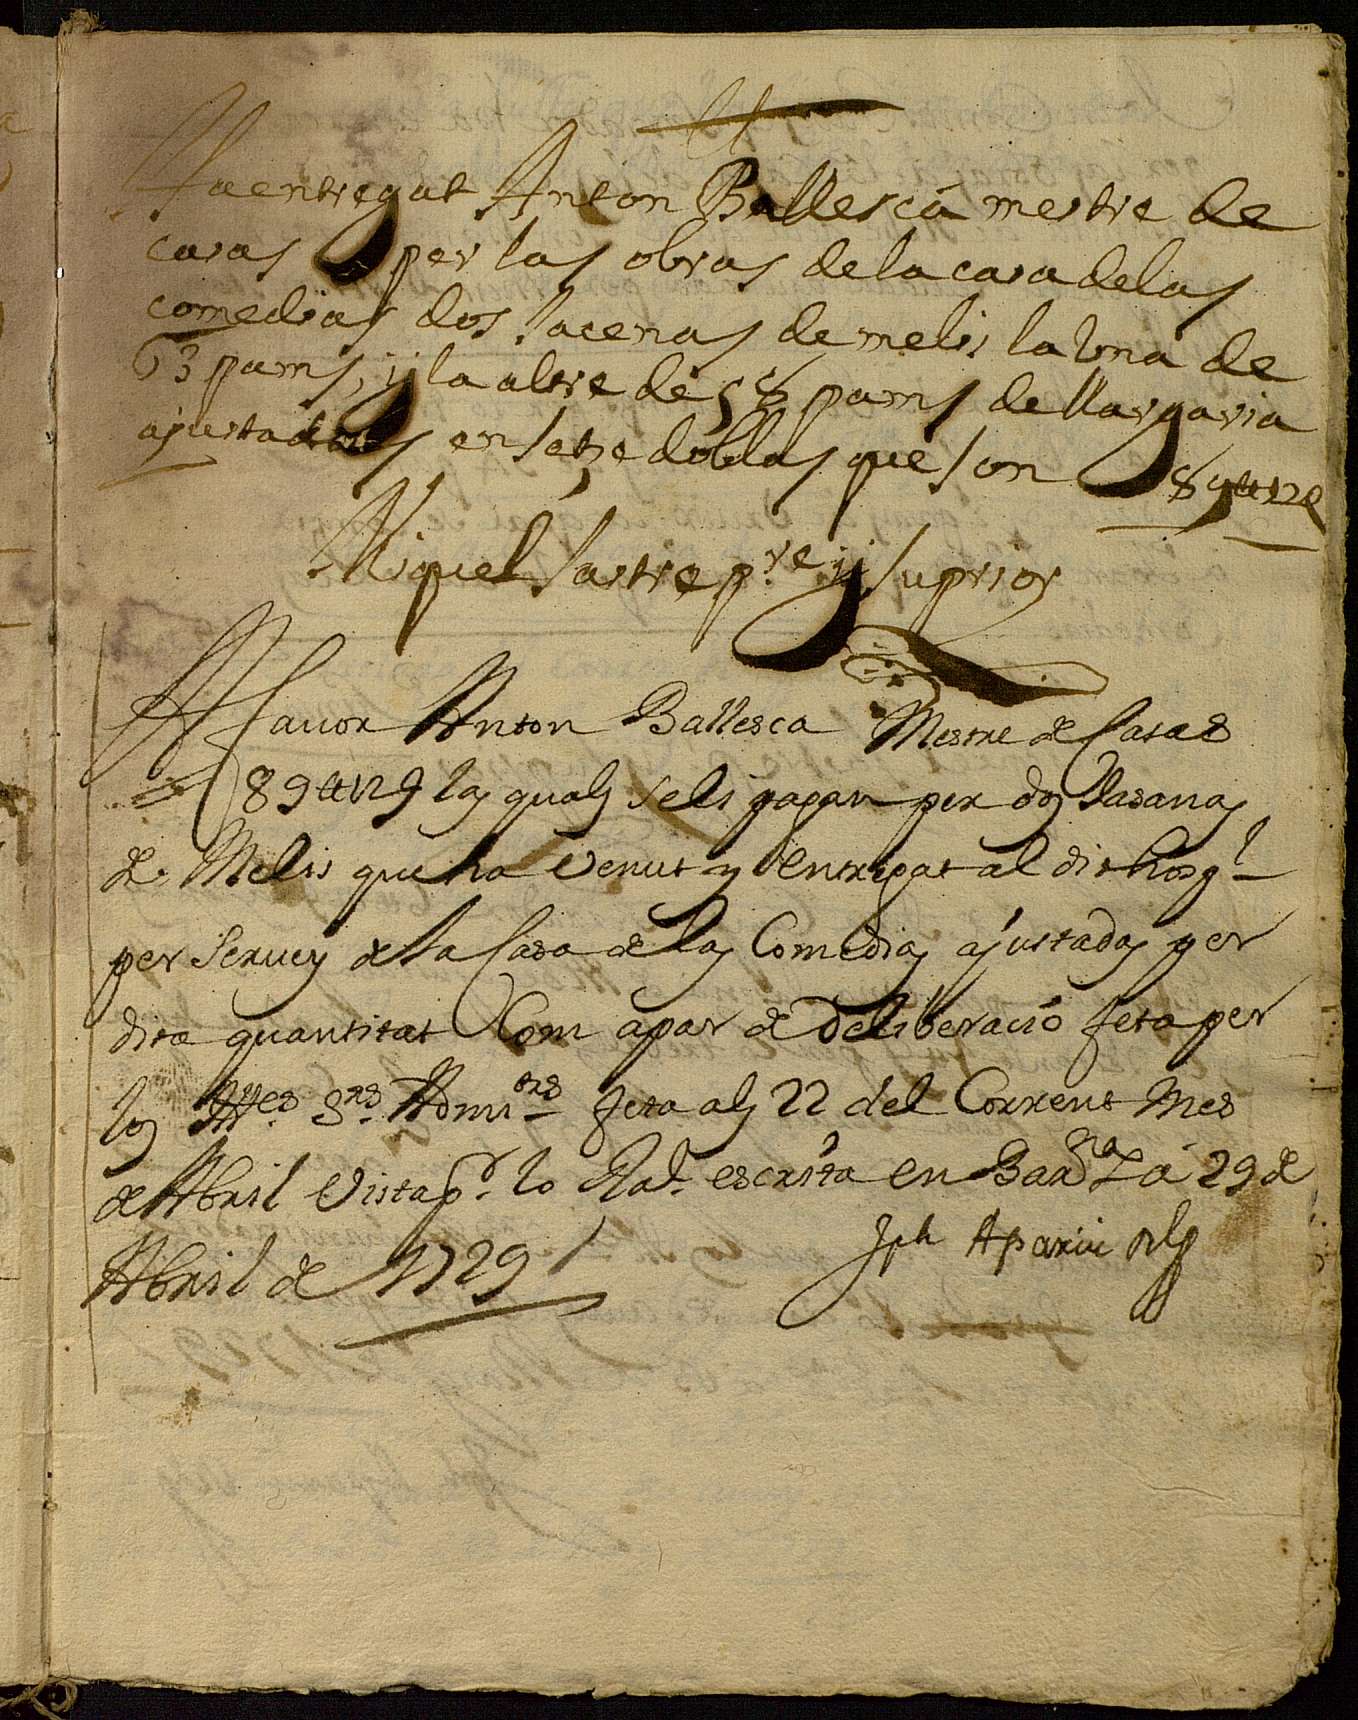 Ha entregat Anton Ballescá mestre de
casas per las obras de la casa de las
comedias dos Jacenas de melis la una de
63 pams, y la altre de 58 pams de llargaria
ajustadas en setze doblas que son 89 ₶ 12 ß
Miquel Sastre p.re y suprior
A favor Anton Ballesca Mestre de Casas
89 ₶ 12 ß las quals se li pagan per dos Jasanas
de Melis que ha Venut y entregat al dit hosp.l
per Servey de la Casa de las Comedias ajustadas per
dita quantitat Com apar de deliberació feta per
los Ill.es S.rs Adm.ors feta als 22 del Corrent Mes
de Abril Vista p.r lo escrita en Bar.na a 29 de
Abril de 1729
Jph Aparici